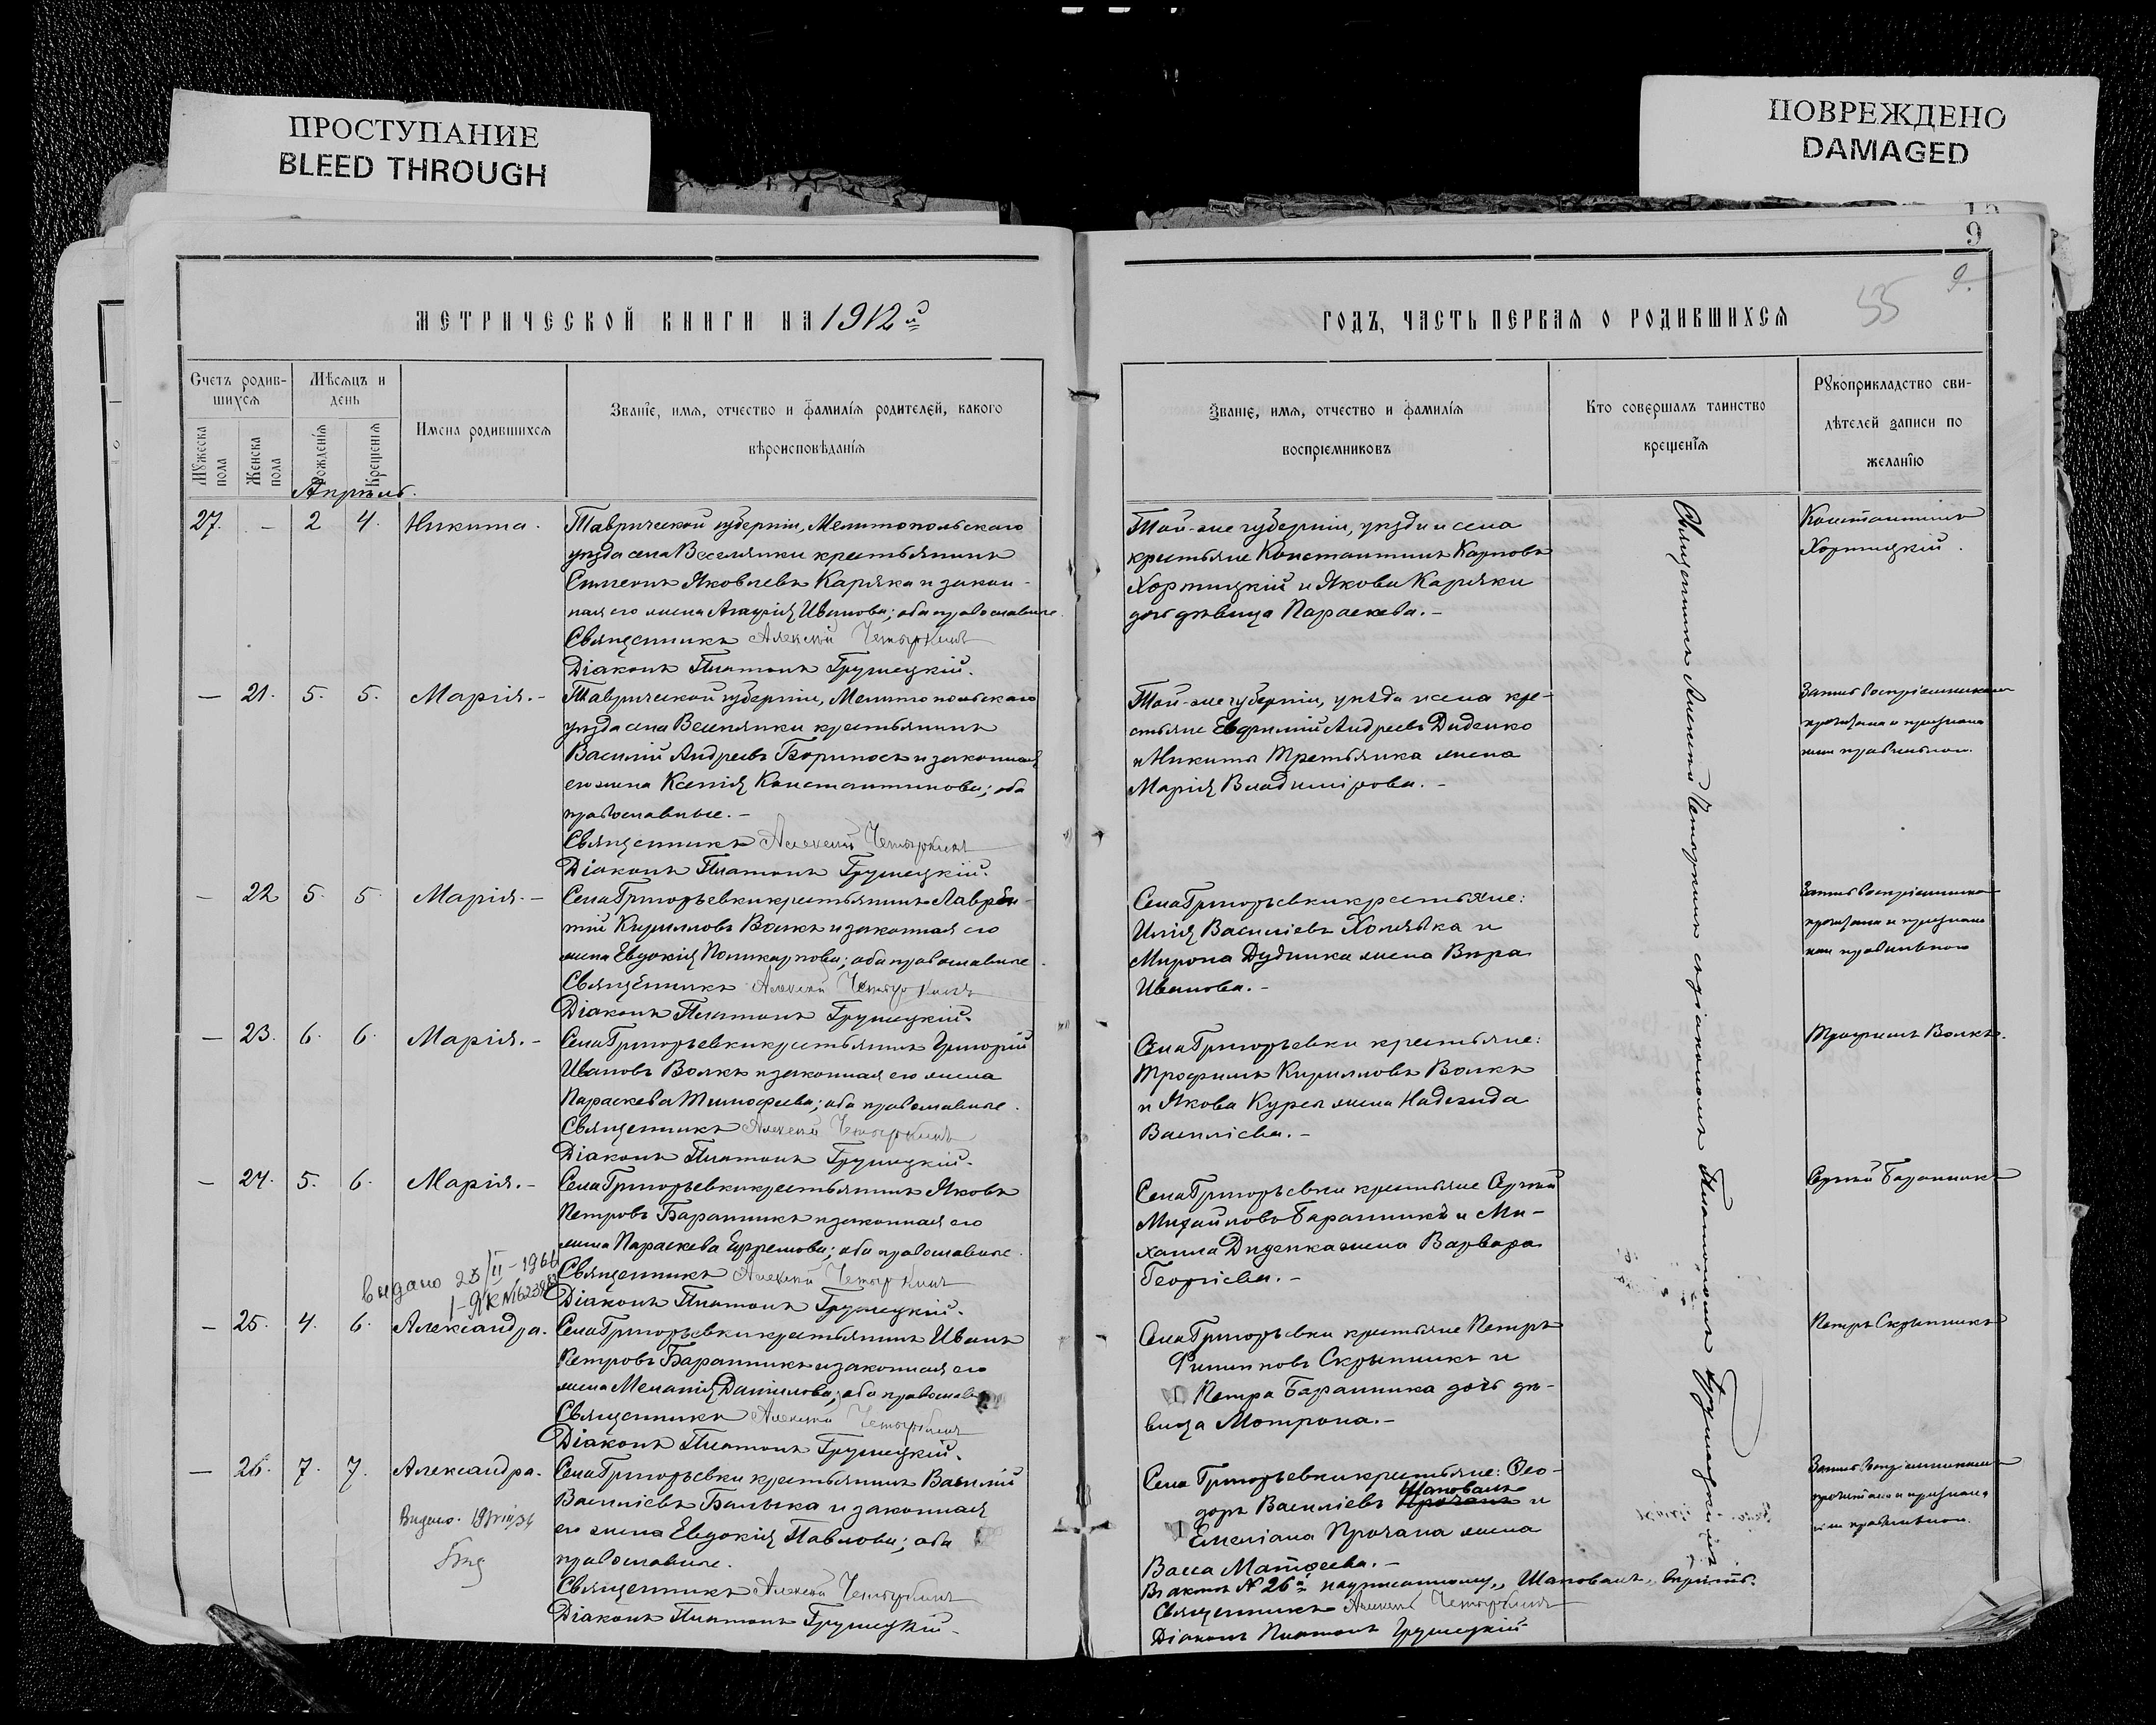 ПРОСТУПАНИЕ
BLEED THROUGH
ПОВРЕЖДЕНО
DAMAGED
9
9.
55
МЕТРИЧЕСКОЙ КНИГИ НА 1912й
Счетъ родив-
шихся
Мѣсяцъ и
день
Мужеска
пола
Женска
пола
Рожденія
Крещенія
Имена родившихся
Званіе, имя, отчество и фамилія родителей, какого
вѣроисповѣданія
Апрѣль.
27. – 2 4. Никита.
Таврической губерніи, Мелитопольскаго
уѣзда села Веселянки крестьянинъ
Симеонъ Яковлевъ Каряка и закон-
ная его жена Агафія Иванова; оба православные.
Священникъ Алексій Четыркинъ
Діаконъ Платонъ Грушецкій.
– 21. 5. 5. Марія.-
Таврической губерніи, Мелитопольскаго
уѣзда села Веселянки крестьянинъ
Василій Андреевъ и законная
его жена Ксенія Константинова; оба
православные.-
Священникъ Алексій Четыркинъ
Діаконъ Платонъ Грушецкій.
– 22 5. 5. Марія.-
Села Григорьевки крестьянинъ Лаврен-
тій Кирилловъ Волкъ и законная его
жена Евдокія Поликарпова; оба православные.
Священникъ Алексій Четыркинъ
Діаконъ Платонъ Грушецкій.
– 23. 6. 6. Марія.-
Села Григорьевки крестьянинъ Григорій
Ивановъ Волкъ и законная его жена
Параскева Тимофеева; оба православные.
Священникъ Алексій Четыркинъ
Діаконъ Платонъ Грушецкій.
– 24. 5. 6. Марія.-
Села Григорьевки крестьянинъ Яковъ
Петровъ Баранникъ и законная его
жена Параскева Ефремова; оба православные.
Священникъ Алексій Четыркинъ
Діаконъ Платонъ Грушецкій.
видано 23/II-1966
– 25. 4. 6. Александра.
Села Григорьевки крестьянинъ Иванъ
Петровъ Баранникъ и законная его
жена Меланія Даніилова; оба православные
Священникъ Алексій Четыркинъ
Діаконъ Платонъ Грушецкій.
– 26. 7. 7. Александра.
Видано.
Села Григорьевки крестьянинъ Василій
Василіевъ Балыка и законная
его жена Евдокія Павлова; оба
православные.
Священникъ Алексій Четыркинъ
Діаконъ Платонъ Грушецкій.
ГОДЪ, ЧАСТЬ ПЕРВАЯ О РОДИВШИХСЯ
Званіе, имя, отчество и фамилія
воспріемниковъ
Кто совершалъ таинство
крещенія
Рукоприкладство сви-
дѣтелей записи по
желанію
Той-же губерніи, уѣзда и села
крестьяне Константинъ Карповъ
Хортицкій и Якова Каряки
дочь дѣвица Параскева.-
Константинъ
Хортицкій.
Той-же губерніи, уѣзда и села кре-
стьяне Евфимій Андреевъ Диденко
и Никиты Третьяка жена
Марія Владимірова.-
прочитана и признана
ими правильною.
Села Григорьевки крестьяне:
Илія Василіевъ Хомяка и
Мирона Дудника жена Вѣра
Иванова.-
прочитана и признана
ими правильною
Села Григорьевки крестьяне:
Трофимъ Кирилловъ Волкъ
и Якова Куреп жена Надежда
Василіева.-
Трофимъ Волкъ.
Села Григорьевки крестьяне Сергій
Михайловъ Баранникъ и Ми-
хаила Диденка жена Варвара
Георгіева.-
Сергій Баранникъ
Села Григорьевки крестьяне Петръ
Филипповъ Скрыпникъ и
Петра Баранника дочь дѣ-
вица Мотрона.-
Петръ Скрыпникъ
Села Григорьевки крестьяне: Ѳео-
Шаповалъ
доръ Василіевъ Прочанъ и
Емеліана Прочана жена
Васса Матѳеева.-
Въ актѣ № 26й надписанному „Шаповалъ„ вѣрить.
Священникъ Алексій Четыркинъ
Діаконъ Платонъ Грушецкій
прочитана и признана
ими правильною.
Священникъ Алексій Четыркинъ съ діакономъ Платономъ Грушецкимъ